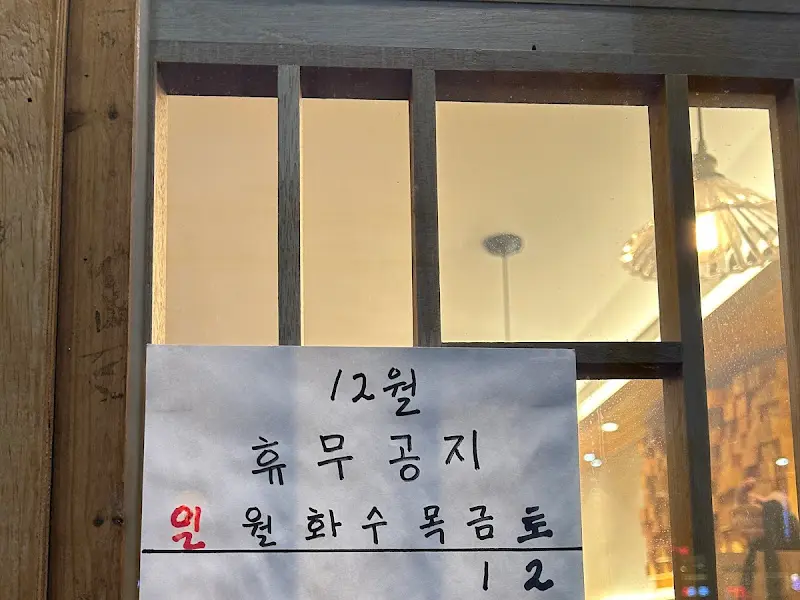 12월
휴무공지
일 월 화 수 목 금 토
1 2